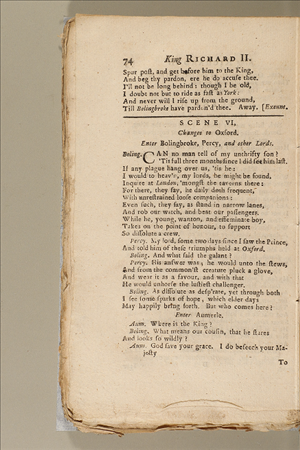 74 King RICHARD II.
Spur post, and get before him to the King,
And beg thy pardon, ere he do accuse thee.
I'll not be long behind; though I be old,
I doubt not but to ride as fast as York:
And never will I rise up from the ground,
Till Bolingbroke have pardon'd thee. Away. [Exeunt.
SCENE VI.
Changes to Oxford.
Enter Bolingbroke, Percy, and other Lords.
Boling. CAN no man tell of my unthrifty son?
'Tis full three months since I did see him last.
If any plague hang over us, 'tis he:
I would to heav'n, my lords, he might be found.
Inquire at London, 'mongst the taverns there:
For there, they say, he daily doth frequent,
With unrestrained loose companions:
Even such, they say, as stand in narrow lanes,
And rob our watch, and beat our passengers.
While he, young, wanton, and effeminate boy,
Takes on the point of honour, to support
So dissolute a crew.
Percy. My lord, some two days since I saw the Prince,
And told him of these triumphs held at Oxford.
Boling. And what said the galant?
Percy. His answer was; he would unto the stews,
And from the common'st creature pluck a glove,
And wear it as a favour, and with that
He would unhorse the lustiest challenger.
Boling. As dissolute as desp'rate, yet through both
I see some sparks of hope, which elder days
May happily bring forth. But who comes here?
Enter Aumerle.
Aum. Where is the King?
Boling. What means our cousin, that he stares
And looks so wildly?
Aum. God save your grace. I do beseech your Ma-
jesty
To